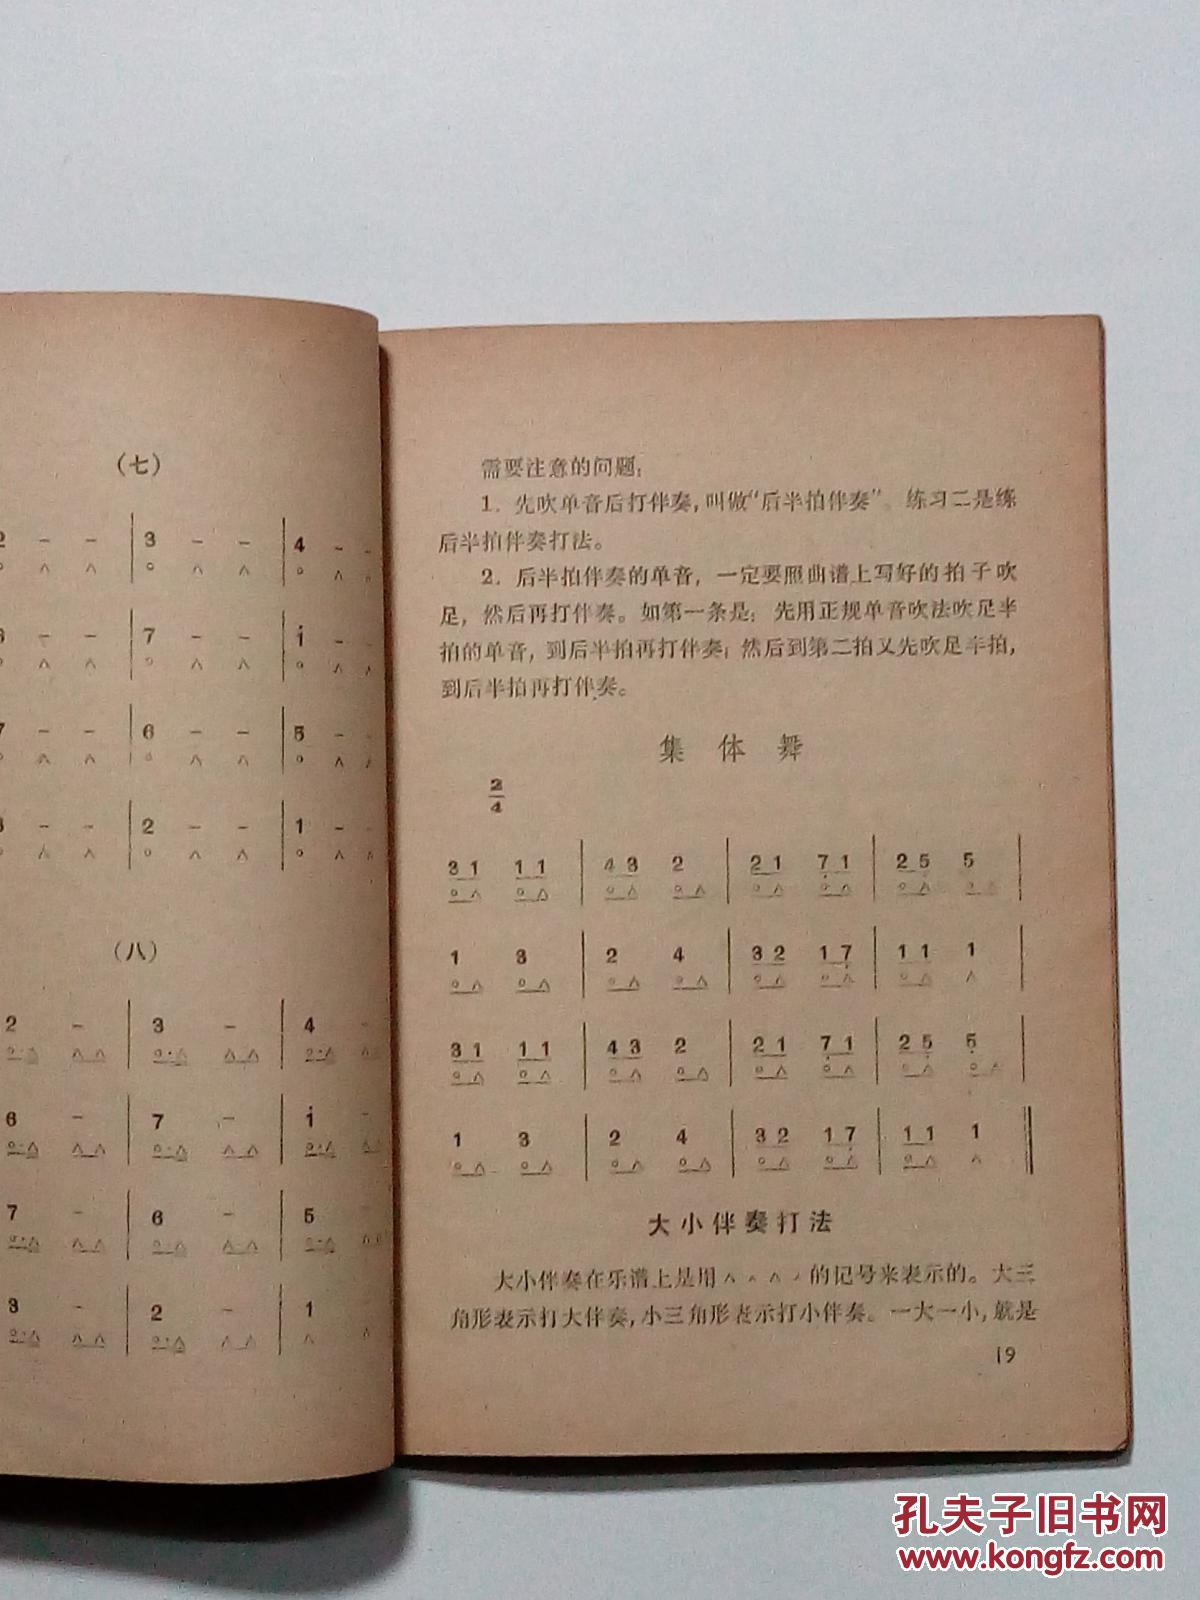 (七)
2 - - | 3 - - | 4 - -
○ ∧ ∧ ○ ∧ ∧ ○ ∧ ∧
6 - - | 7 - - | i - -
○ ∧ ∧ ○ ∧ ∧ ○ ∧ ∧
7 - - | 6 - - | 5 - -
○ ∧ ∧ ○ ∧ ∧ ○ ∧ ∧
3 - - | 2 - - | 1 - -
○ ∧ ∧ ○ ∧ ∧ ○ ∧ ∧
(八)
2 - | 3 - | 4 -
○·△ △△ ○·△ △△ ○·△ △△
6 - | 7 - | i -
○·△ △△ ○·△ △△ ○·△ △△
7 - | 6 - | 5 -
○·△ △△ ○·△ △△ ○·△ △△
3 - | 2 - | 1 -
○·△ △△ ○·△ △△ ∧ ∧
需要注意的问题:
1. 先吹单音后打伴奏,叫做“后半拍伴奏”。练习二是练
后半拍伴奏打法。
2. 后半拍伴奏的单音,一定要照曲谱上写好的拍子吹
足,然后再打伴奏。如第一条是:先用正规单音吹法吹足半
拍的单音,到后半拍再打伴奏;然后到第二拍又先吹足半拍,
到后半拍再打伴奏。
集体舞
2
4
3 1 1 1 | 4 3 2 | 2 1 7̣ 1 | 2 5̣ 5 |
○△ ○△ ○△ ○△ ○△ ○△ ○△ ○△
1 3 | 2 4 | 3 2 1 7̣ | 1 1 1 |
○△ ○△ ○△ ○△ ○△ ○△ ○△ ∧
3 1 1 1 | 4 3 2 | 2 1 7̣ 1 | 2 5̣ 5̣ |
○△ ○△ ○△ ○△ ○△ ○△ ○△ ○△
1 3 | 2 4 | 3 2 1 7̣ | 1 1 1 ‖
○△ ○△ ○△ ○△ ○△ ○△ ○△ ∧
大小伴奏打法
大小伴奏在乐谱上是用∧ ∧ ∧ ∧的记号来表示的。大三
角形表示打大伴奏,小三角形表示打小伴奏。一大一小,就是
19
孔夫子旧书网
www.kongfz.com